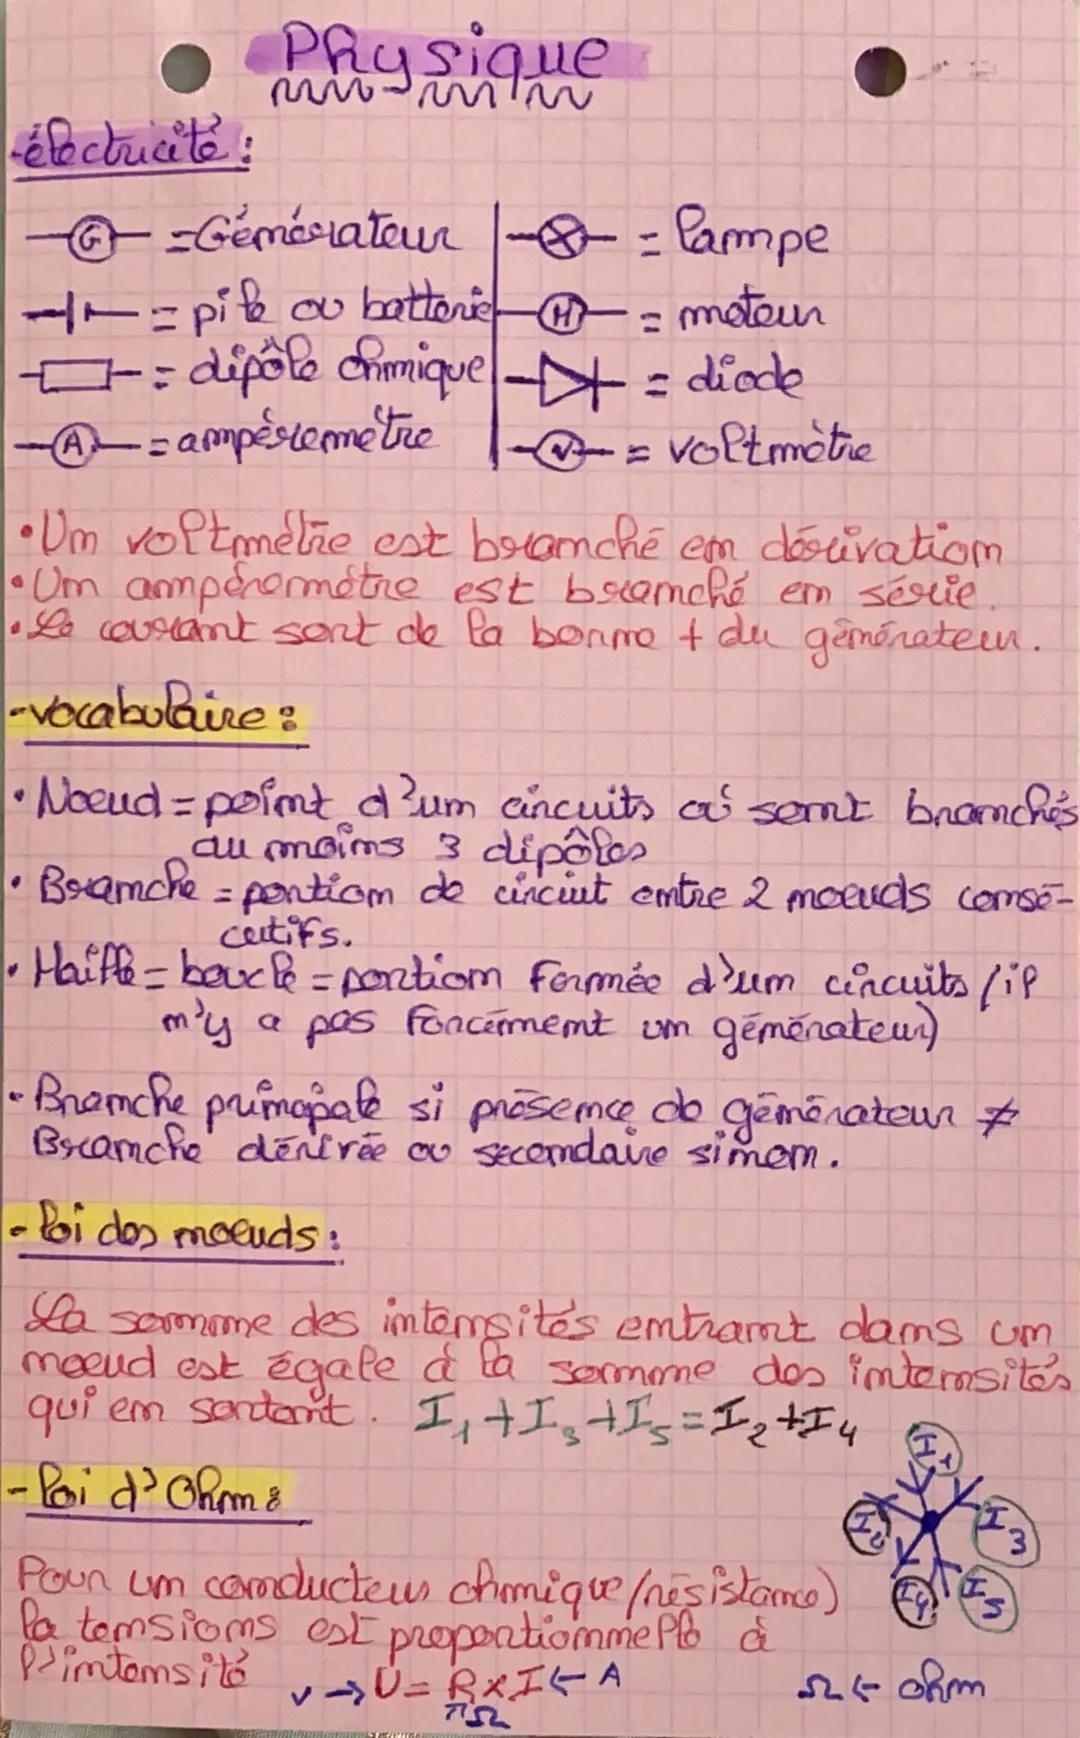 Physique
-électricité :
G = Générateur
= Lampe
= pile ou batterie
M = moteur
= dipôle ohmique
= diode
A = ampèremètre
V = voltmètre
• Un voltmètre est branché en dérivation
• Un ampèremètre est branché en série.
• Le courant sort de la borne + du générateur.
-vocabulaire :
• Noeud = point d'un circuits où sont branchés
au moins 3 dipôles
• Branche = portion de circuit entre 2 noeuds consé-
cutifs.
• Maille = boucle = portion fermée d'un circuits (il
n'y a pas forcément un générateur)
• Branche principale si présence de générateur ≠
Branche dérivée ou secondaire sinon.
- loi des noeuds :
La somme des intensités entrant dans un
noeud est égale à la somme des intensités
qui en sortent. I₁+I₃+I₅=I₂+I₄
I₁
I₂
I₃
I₄
I₅
- loi d'Ohm :
Pour un conducteur ohmique (résistance)
la tensions est proportionnelle à
l'intensité
V → U = R×I ← A
↑Ω
Ω ← ohm